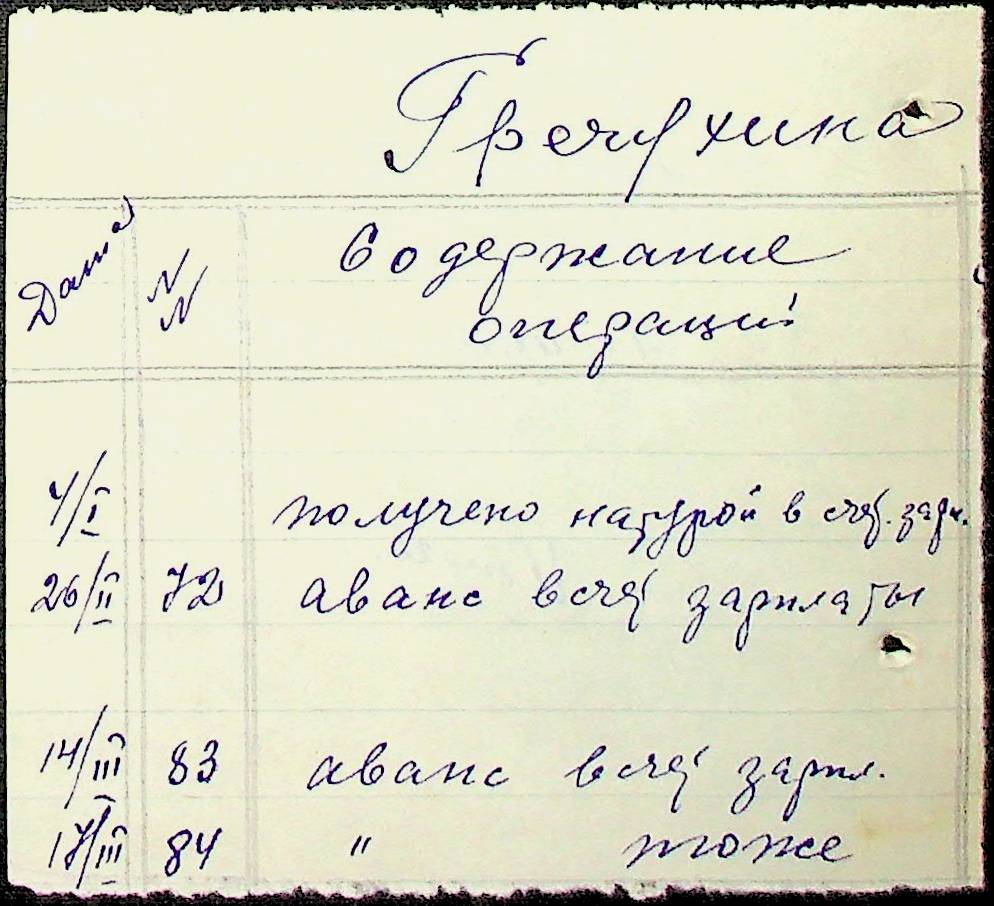 Гречухина
Дата
NN
Содержание
операций
4/I получено натурой в счет. зарп.
26/II 72 аванс в счет зарплаты
14/III 83 аванс в счет зарпл.
17/III 84 " тоже